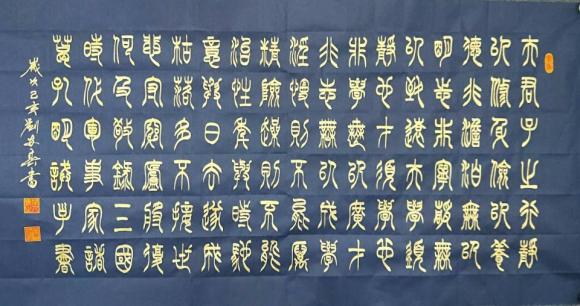 夫君子之行靜
以修身儉以養
德非澹泊無以
明志非寧靜無
以致遠夫學須
靜也才須學也
非學無以廣才
非志無以成學
淫慢則不能勵
精險躁則不能
治性年與時馳
意與日去遂成
枯落多不接世
悲守窮廬將復
何及敬錄三國
時代軍事家諸
葛孔明誡子書
歲次己亥劉書